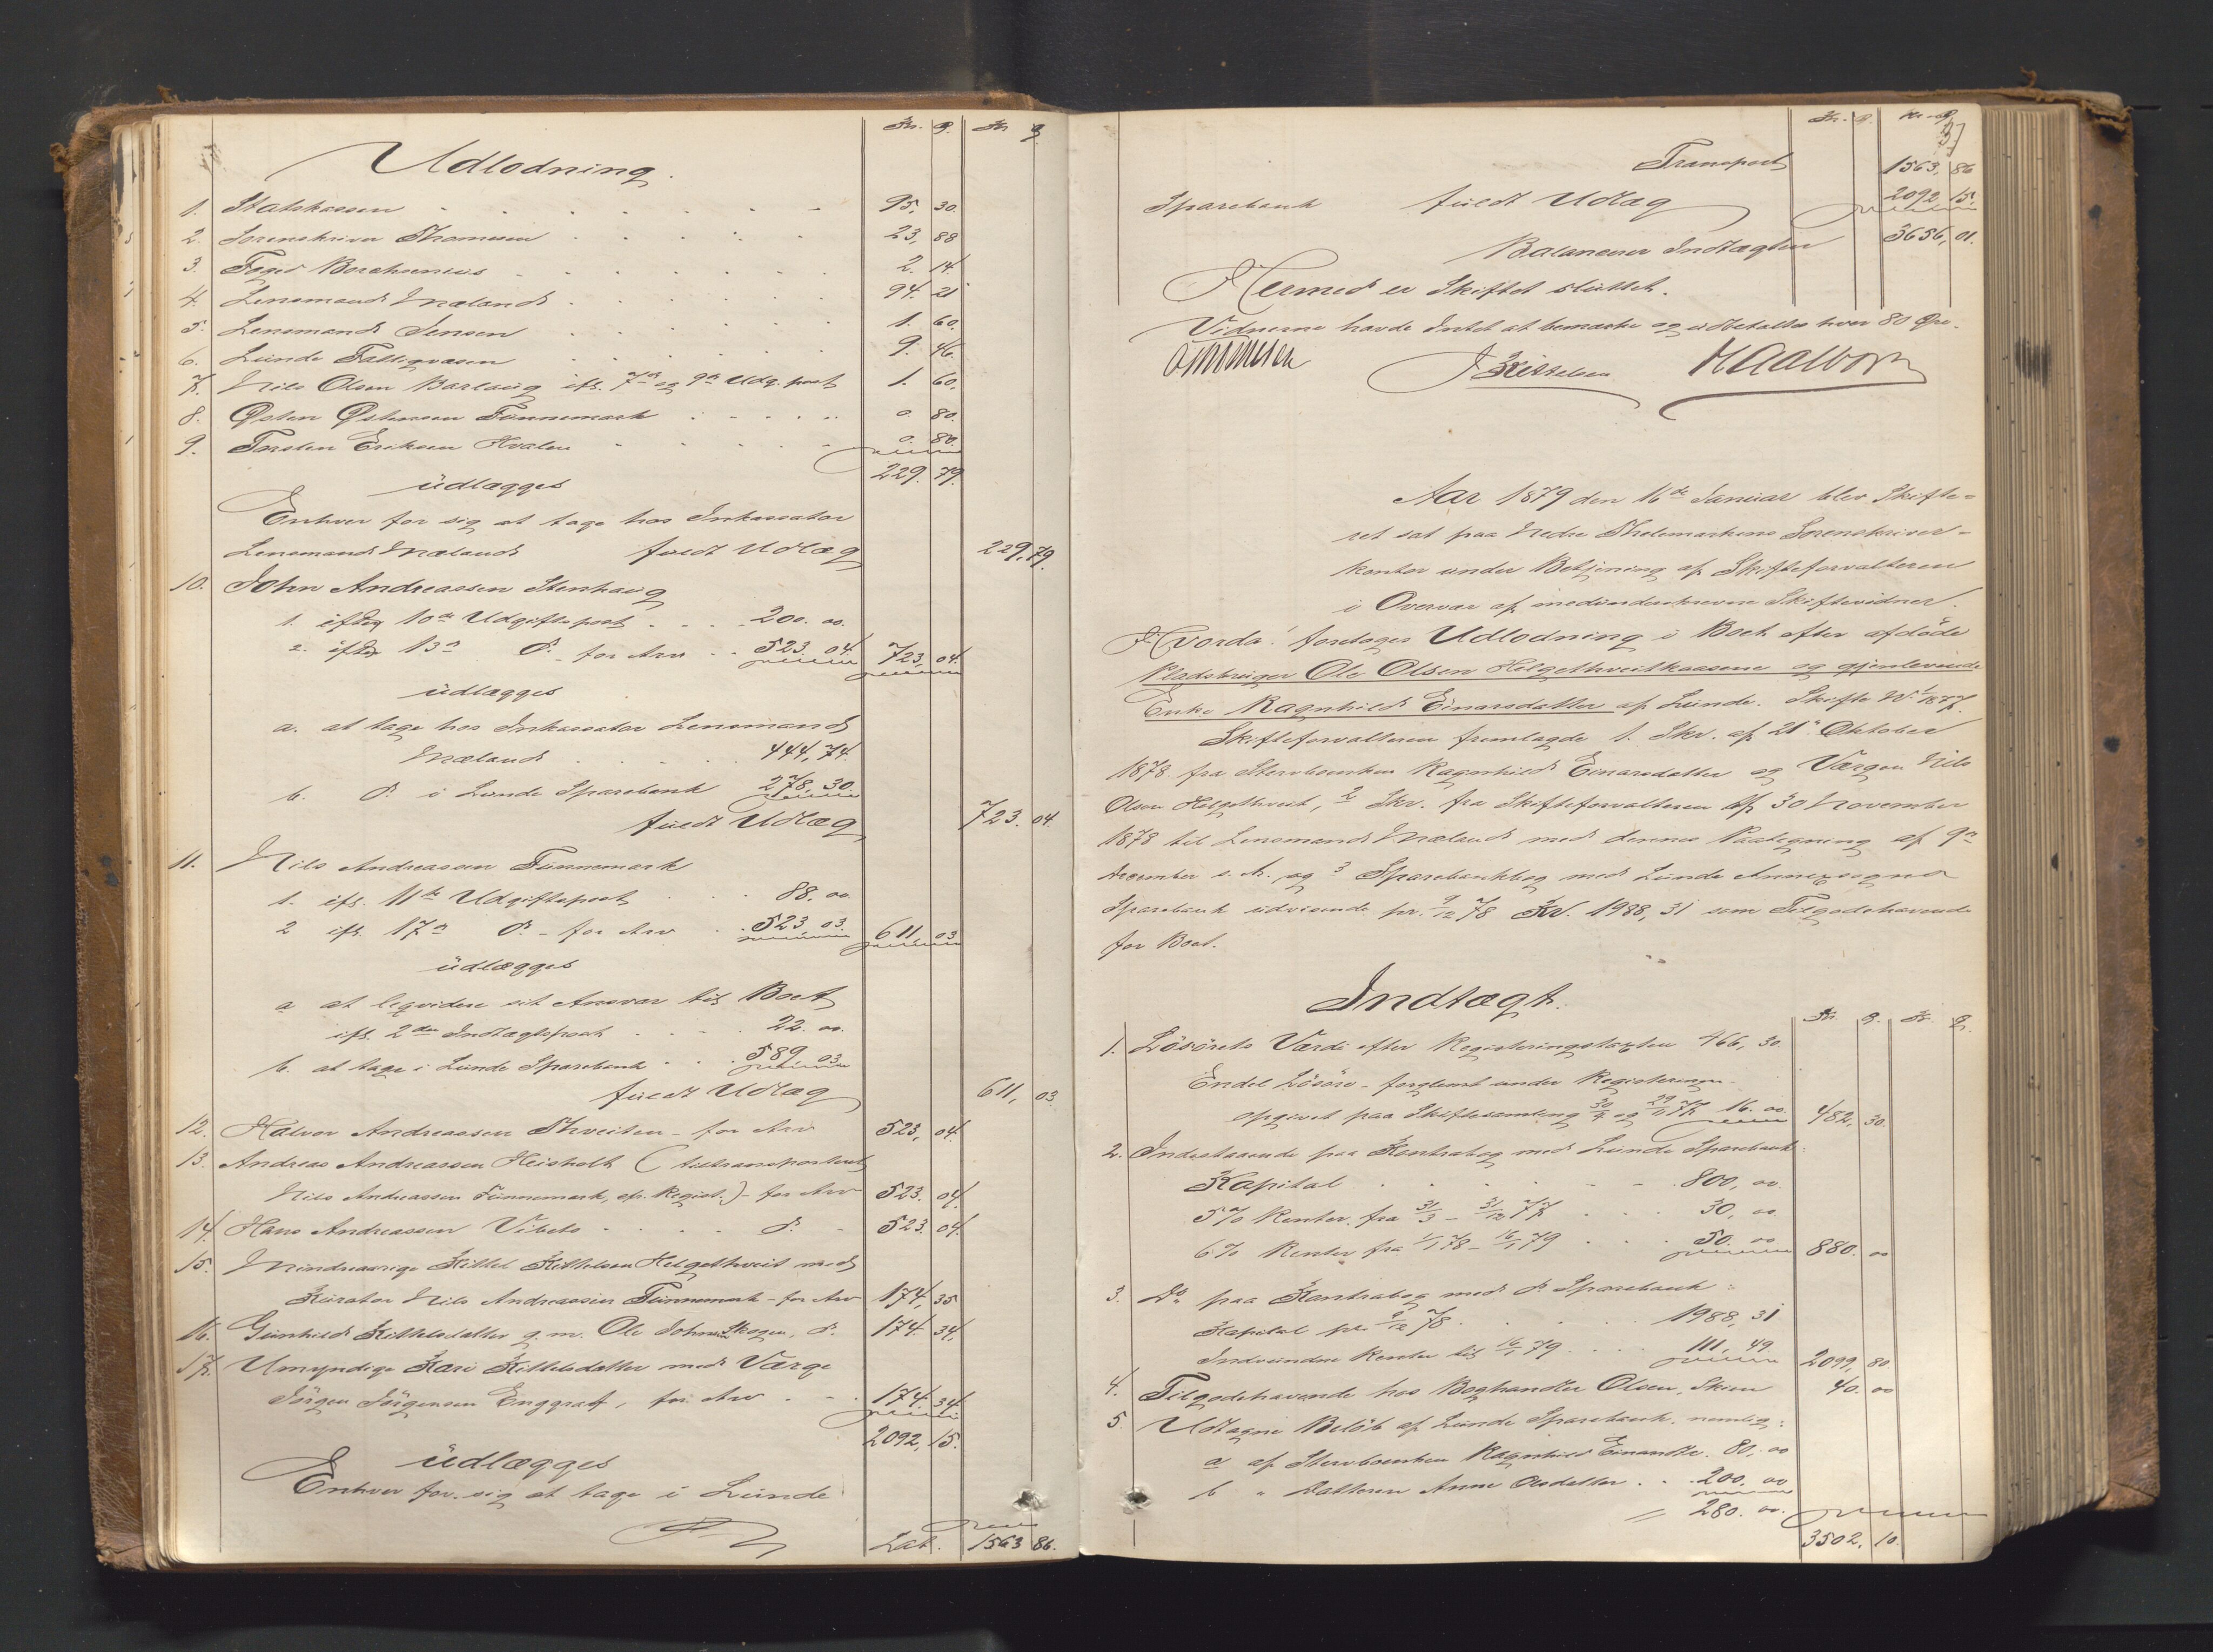 Kr. Ø. Kr Ø
Udlodning.
1. Statskassen 95, 30.
2. Sorenskriver Thomesen 23, 88
3. Foged Borchsenius 2. 14
4. Lensmand Mæland 94. 21
5. Lensmand Jensen 1. 60.
6. Lunde Fattigvæsen 9. 46.
7. Nils Olsen Barlaug ifl. 7de og 9de Udg. post 1. 60.
8. Østen Østensen Funnemark 0. 80.
9. Torsten Eriksen Hvalen 0. 80.
229. 79.
udlægges
Enhver for sig at tage hos Inkassator
Lensmand Mæland fuldt Udlæg 229, 79.
10. John Andreassen Stenhaug
1. iflg 10de Udgiftspost 200. 00.
2. iflg 13de do. for Arv 523. 04. 723, 04.
udlægges
a. at tage hos Inkassator Lensmand
Mæland 444, 74.
b. do. i Lunde Sparebank 278, 30.
fuldt Udlæg 723. 04.
11. Nils Andreassen Funnemark
1. ifl. 11te Udgiftspost 88, 00
2 ifl. 17de do. - for Arv 523, 03. 611, 03
udlægges
a at liqvidere sit Ansvar til Boet
ifl. 2den Indtægtspost 22. 00.
b. at tage i Lunde Sparebank 589, 03.
fuldt Udlæg 611, 03
12. Halvor Andreassen Thveiten - for Arv 523, 04.
13. Andreas Andreassen Heisholt (tiltransporteret
Nils Andreassen Funnemark, efr. Regist.) - for Arv 523. 04.
14. Hans Andreassen Vibeto do. 523. 04.
15. Mindreaarige Kittel Kittelsen Helgethveit med
Kurator Nils Andreassen Funnemark - for Arv 174, 35
16. Gunhild Kittelsdatter g. m. Ole Johnsen Skogen, do. 174. 34,
17. Umyndige Kari Kittelsdatter med Værge
Jörgen Jörgensen Enggrav, for Arv 174. 34.
2092, 15.
udlægges
Enhver for sig at tage i Lunde
Lat. 1563 86.
Kr. Ø. Kr Ø
Transport 1563, 86
Sparebank fuldt Udlæg 2092 15.
Balancerer Indtægten 3656, 01.
Hermed er Skiftet sluttet.
Vidnerne havde Intet at bemærke og udbetaltes hver 80 Øre.
J Kittelsen H Aalborg
Aar 1879 den 16de Januar blev Skifte-
ret sat paa Nedre Thelemarkens Sorenskriver-
kontor under Betjening af Skifteforvalteren
i Overvær af medunderskrevne Skiftevidner.
Hvorda: foretoges Udlodning i Boet efter afdöde
Pladsbruger Ole Olsen Helgethveitkaasene og gjenlevende
Enke Ragnhild Einarsdatter af Lunde. Skifte No. 1/1877.
Skifteforvalteren fremlagde 1. Skr. af 21 Oktober
1878 fra Stervboenken Ragnhild Einarsdatter og Værgen Nils
Olsen Helgethveit, 2 Skr. fra Skifteforvalteren af 30 November
1878 til Lensmand Mæland med dennes Paategning af 9de
December s. A. og 3 Sparebankbog med Lunde Annexsogns
Sparebank udvisende pr. 9/12 78 Kr. 1988, 31 som Tilgodehavende
for Boet.
Indtægt.
Kr. Ø. Kr. Ø.
1. Lösörets Værdi efter Registeringstaxten 466, 30
Endel Lösöre - forglemt under Registeringen -
opgivet paa Skiftesamling 30/4 og 29/11 77 16. 00 482, 30.
2. Indestaaende paa Kontrabog med Lunde Sparebank
Kapital 800, 00
5% Renter fra 31/3 - 31/12 77 30, 00
6% Renter fra 1/1 78 - 16/1 79 50. 00 880. 00
3. Do paa Kontrabog med do Sparebank:
Kapital pr. 9/12 78 1988, 31
Indvundne Renter til 16/1 79 111, 49 2099, 80
4. Tilgodehavende hos Boghandler Olsen, Skien 40. 00
5. Udtagne Belöb af Lunde Sparebank, nemlig:
a af Stervboenken Ragnhild Einarsdtr. 80. 00
b " Datteren Anne Olsdatter 200. 00
= 280. 00.
3502, 10.